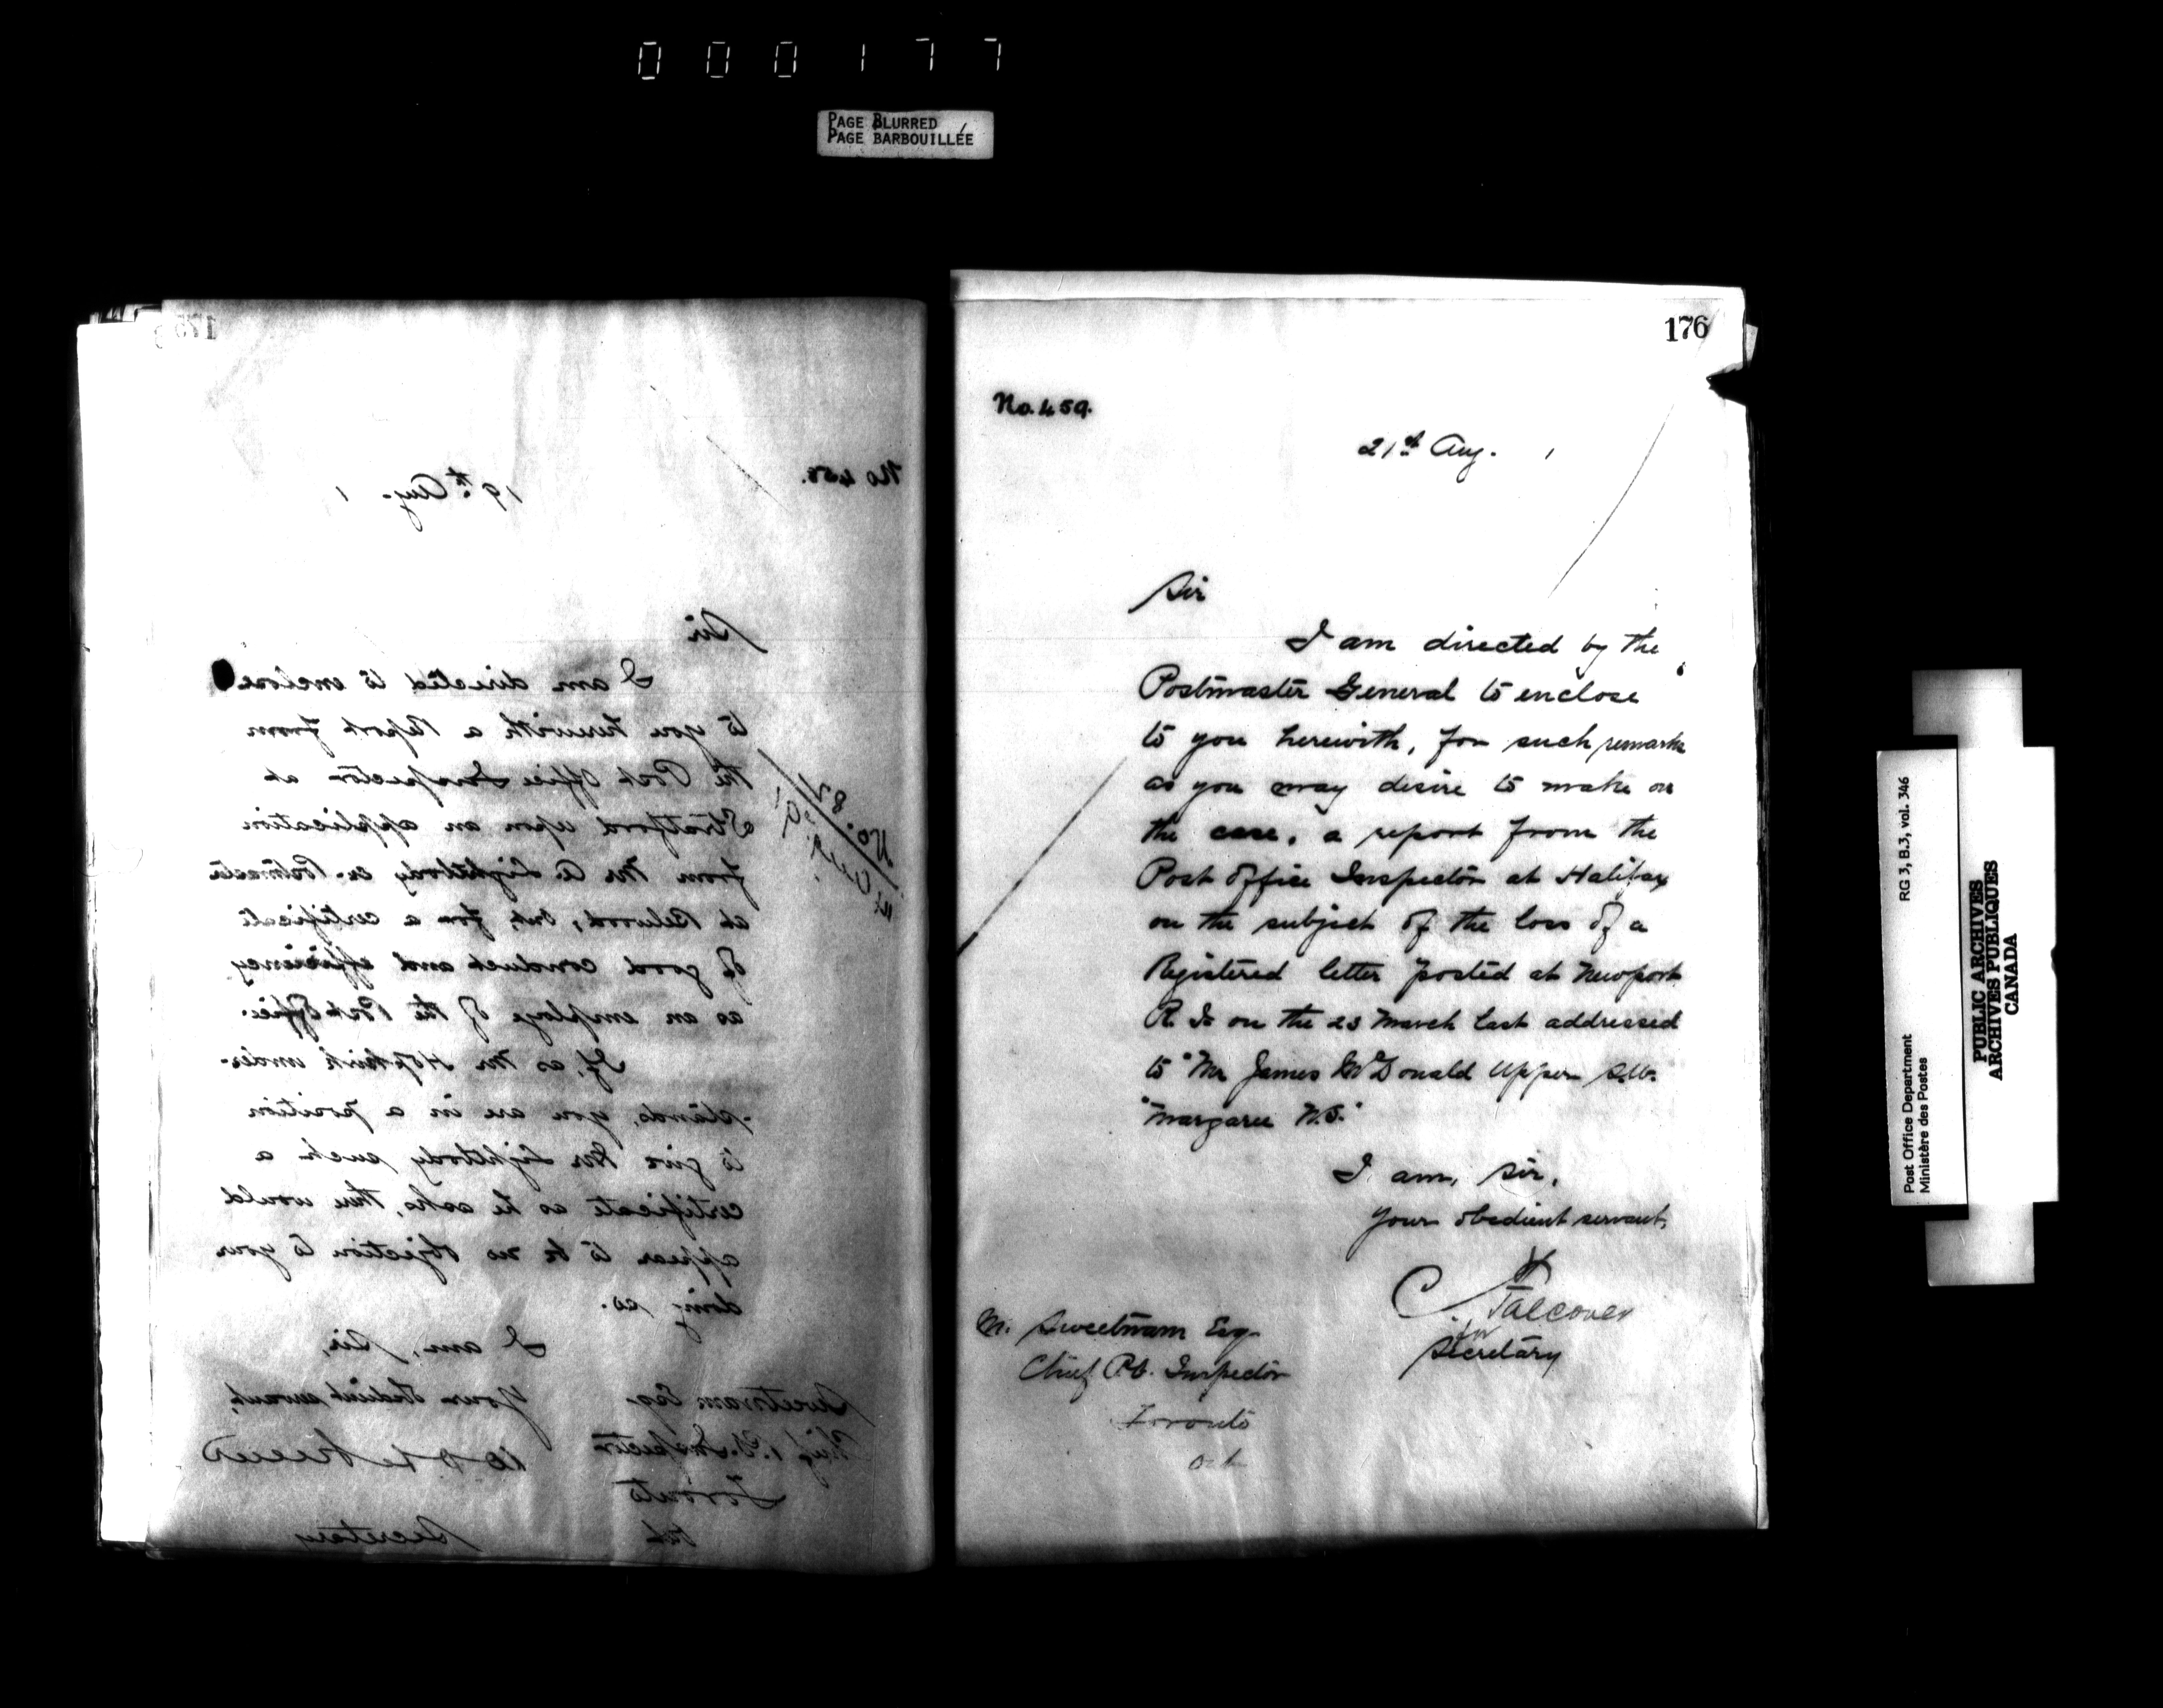 000177
PAGE BLURRED
PAGE BARBOUILLÉE
175
No 458.
19th Aug. 1
Sir
I am directed to enclose
to you herewith a Report from
the Post Office Inspector at
Stratford upon an application
from Mr A Lightbody ex-Postmaster
at Belwood, Ont, for a certificate
of good conduct and efficiency
as an employe of the Post Office.
If, as Mr Hopkirk under-
-stands, you are in a position
to give Mr Lightbody such a
certificate as he asks, there would
appear to be no objection to your
doing so.
I am, Sir,
Your obedient servant,
Secretary
Sweetnam Esq.
Chief P.O. Inspector
Toronto
Ont
176
No. 459.
21st Aug. 1
Sir
I am directed by the
Postmaster General to enclose
to you herewith, for such remarks
as you may desire to make on
the case, a report from the
Post Office Inspector at Halifax
on the subject of the loss of a
Registered letter posted at Newport
R. I. on the 23 March last addressed
to "Mr James McDonald Upper S.W.
"Margaree N.S."
I am, Sir,
Your obedient servant,
for
Secretary
M. Sweetnam Esq.
Chief P.O. Inspector
Toronto
Ont
Post Office Department
Ministère des Postes
RG 3, B.3, vol. 346
PUBLIC ARCHIVES
ARCHIVES PUBLIQUES
CANADA